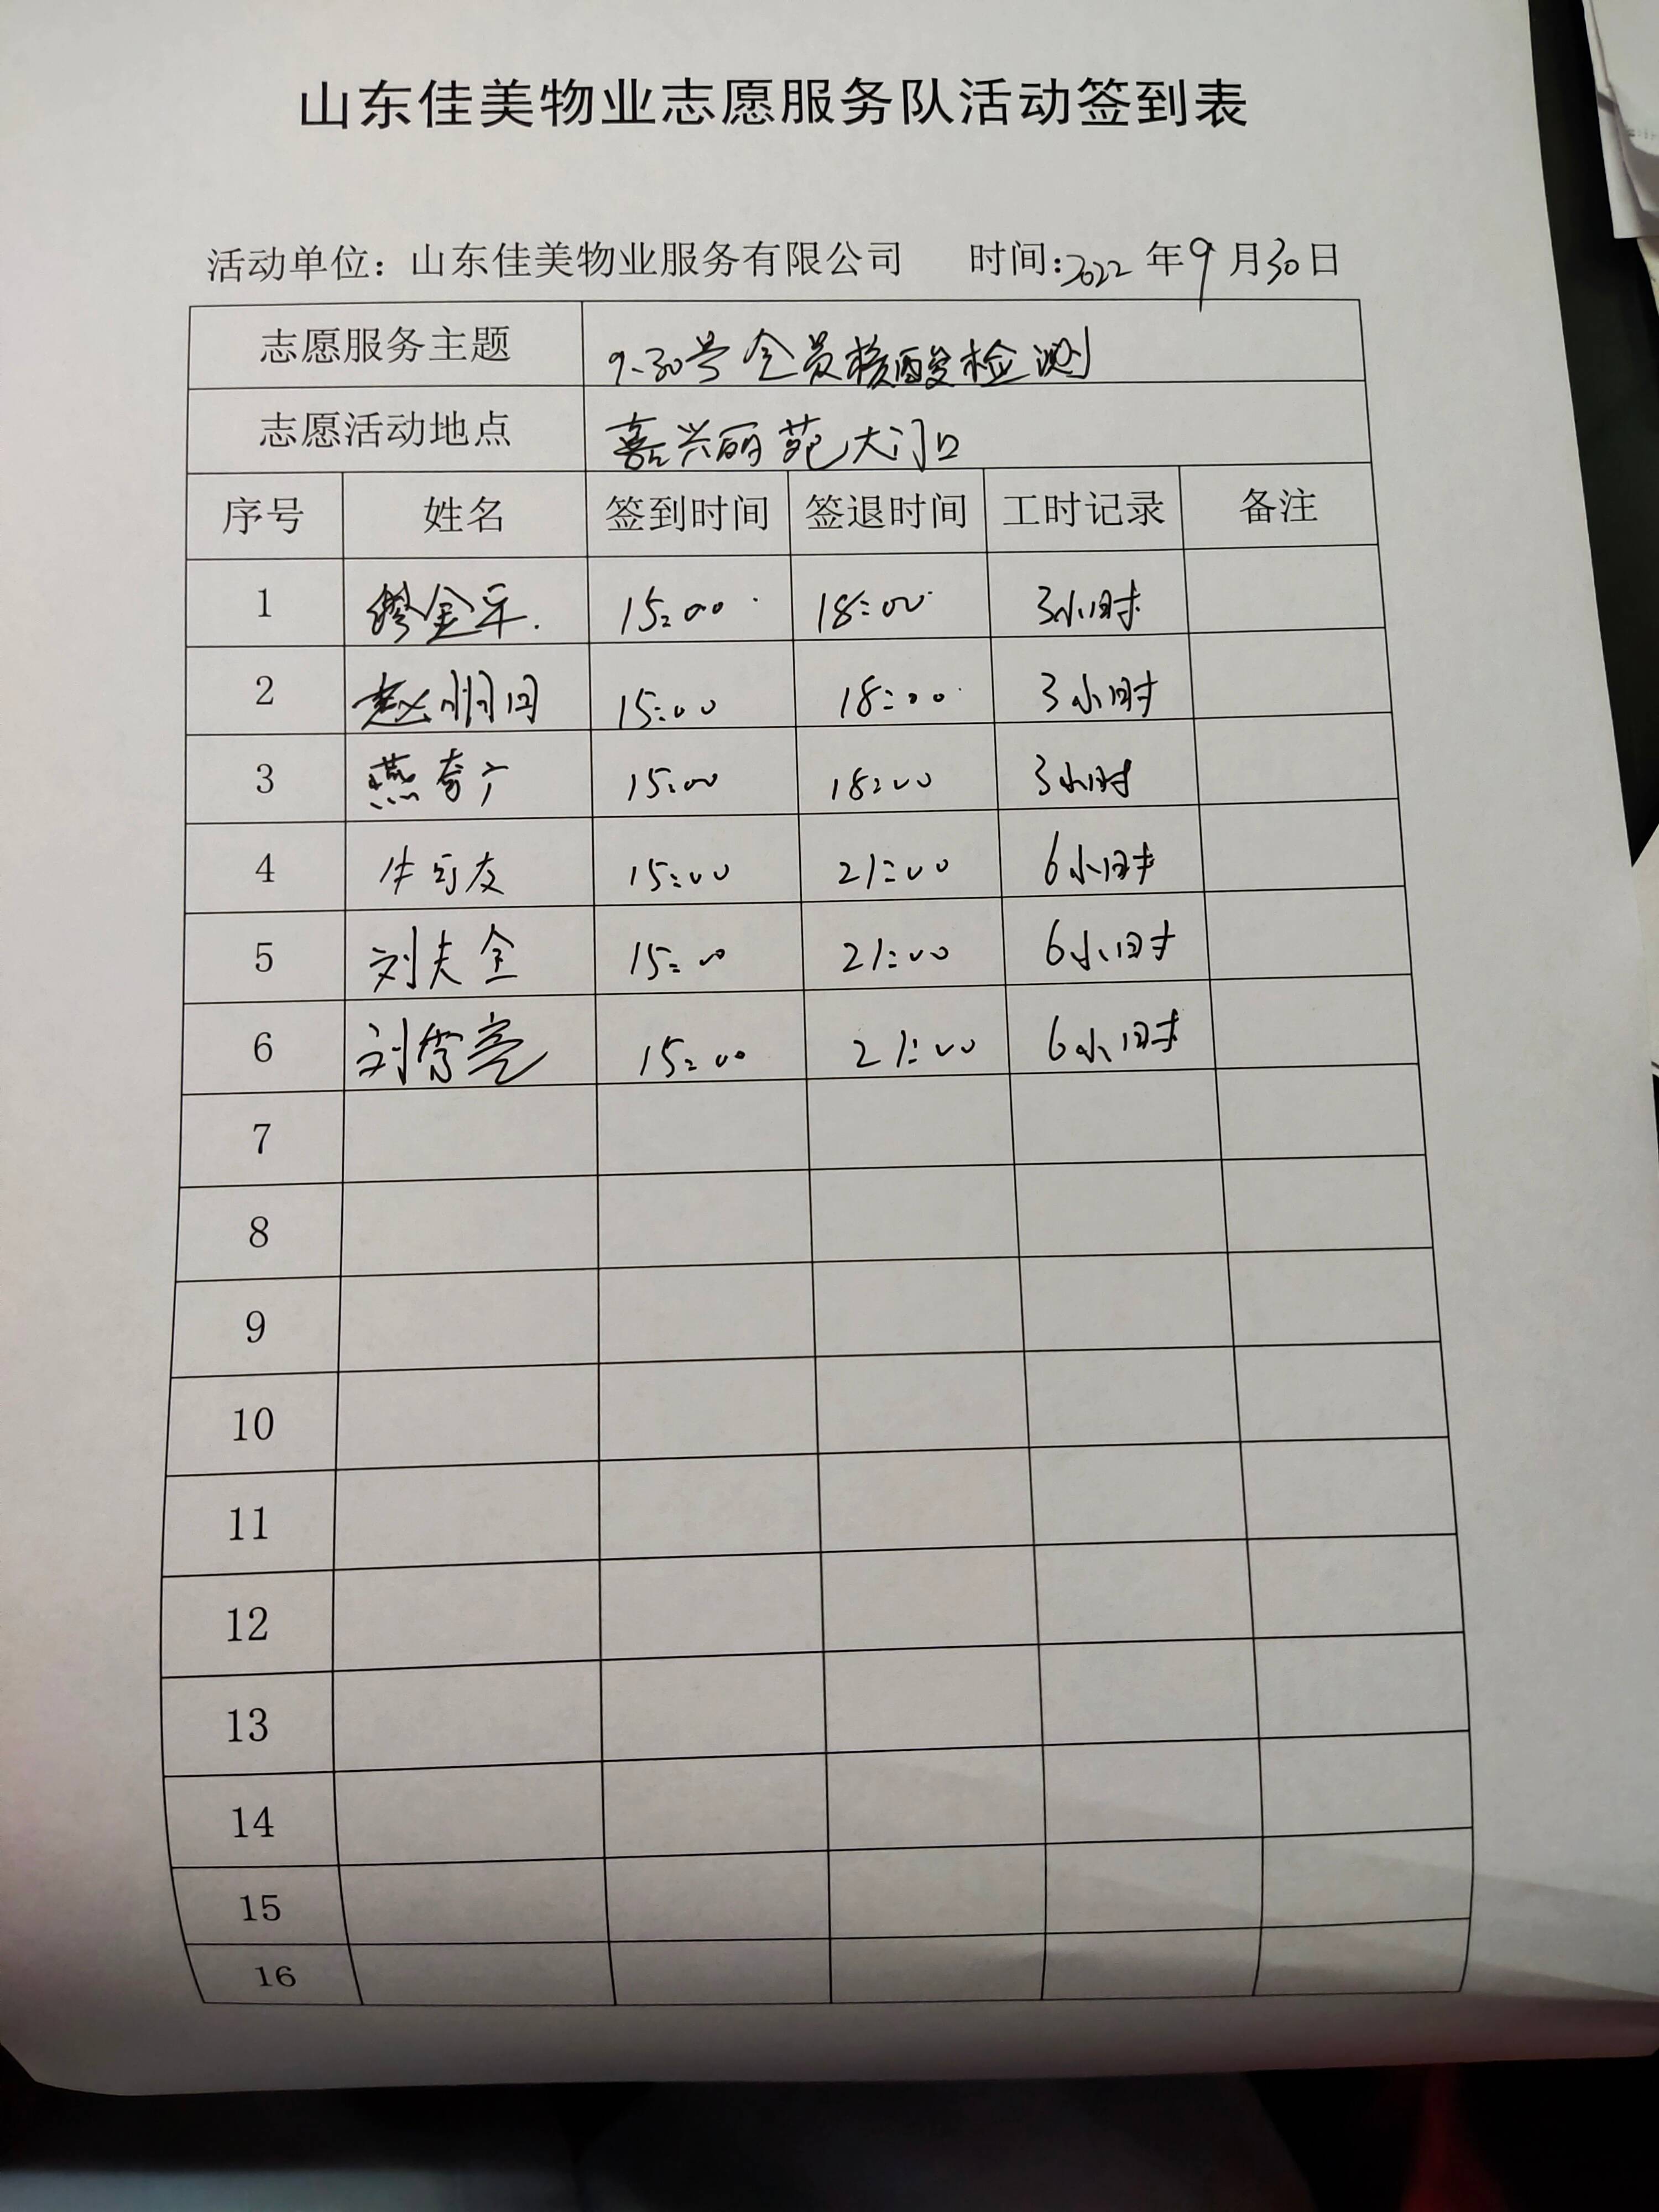 山东佳美物业志愿服务队活动签到表
活动单位：山东佳美物业服务有限公司 时间:2022年9月30日
志愿服务主题 9.30号全员核酸检测
志愿活动地点 嘉兴丽苑大门口
序号 姓名 签到时间 签退时间 工时记录 备注
1 15:00 18:00 3小时
2 赵 15:00 18:00 3小时
3 燕 15:00 18:00 3小时
4 牛 友 15:00 21:00 6小时
5 刘夫全 15:00 21:00 6小时
6 刘 亮 15:00 21:00 6小时
7
8
9
10
11
12
13
14
15
16